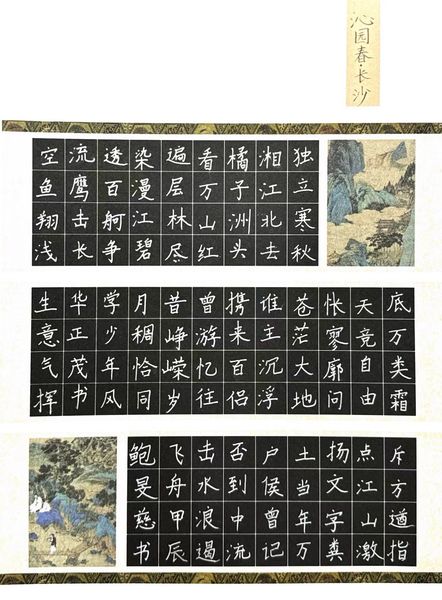 沁园春·长沙
独立寒秋
湘江北去
橘子洲头
看万山红
遍层林尽
染漫江碧
透百舸争
流鹰击长
空鱼翔浅
底万类霜
天竞自由
怅寥廓问
苍茫大地
谁主沉浮
携来百侣
曾游忆往
昔峥嵘岁
月稠恰同
学少年风
华正茂书
生意气挥
斥方遒指
点江山激
扬文字粪
土当年万
户侯曾记
否到中流
击水浪遏
飞舟甲辰
鲍旻慈书